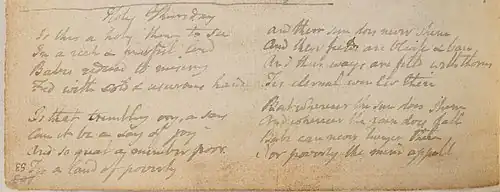 Holy Thursday
Is this a holy thing to see
In a rich & fruitful land
Babes reducd to misery
Fed with cold & usurous hand
Is that trembling cry a song
Can it be a song of joy
And so great a number poor
Tis a land of poverty
And their sun does never shine
And their fields are bleak & bare
And their ways are filld with thorns
Tis eternal winter there
But whereeer the sun does shine
And whereeer the rain does fall
Babe can never hunger there
Nor poverty the mind appall